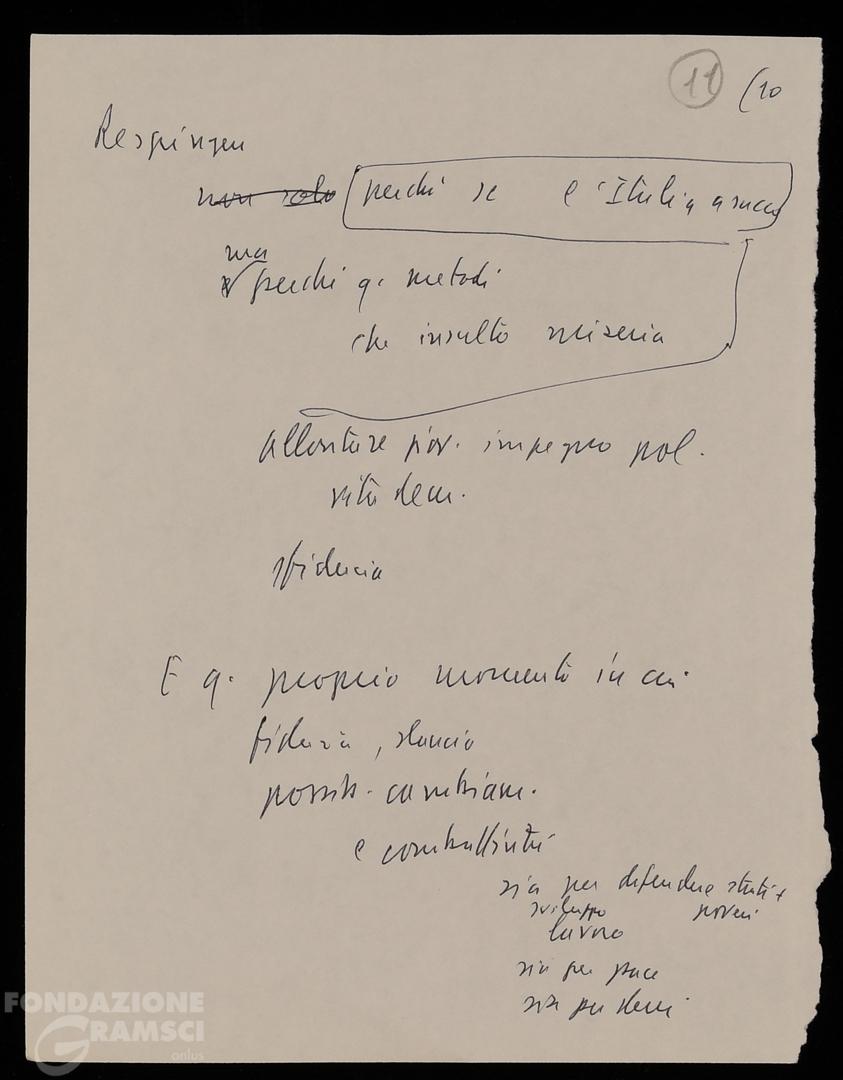 11 (10
Respingere
non solo perché se e l'Italia a
ma
perché q. metodi
che insulto miseria
allontare piov. impegno pol.
vita dem.
sfiducia
E q. proprio momento in cui
fiducia, slancio
possib. cambiam.
e combattività
sia per difendere strati +
sviluppo poveri
lavoro
sia per pace
sia per dem
FONDAZIONE
GRAMSCI
onlus